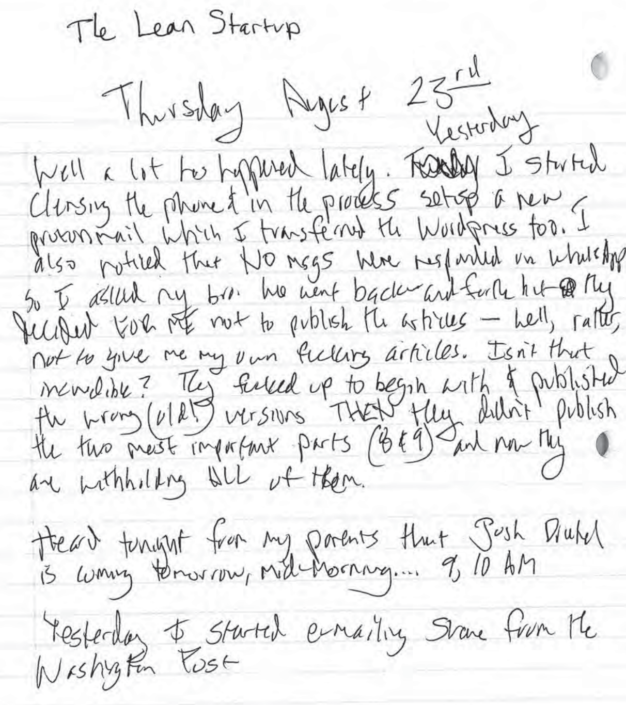 The Lean Startup
Thursday August 23rd
Yesterday
Well a lot has happened lately. I started
Clensing the phone & in the process setup a new
protonmail which I transferred the Wordpress too. I
also noticed that NO msgs were responded on WhatsApp
so I asked my bro. We went back and forth but they
decided FOR ME not to publish the articles — well, rather,
not to give me my own fucking articles. Isn't that
incredible? They fucked up to begin with & published
the wrong (old!) versions THEN they didn't publish
the two most important parts (8 & 9) and now they
are withholding ALL of them.
Heard tonight from my parents that Josh
is coming tomorrow, mid-Morning.... 9, 10 AM
Yesterday I started e-mailing Shane from the
Washington Post